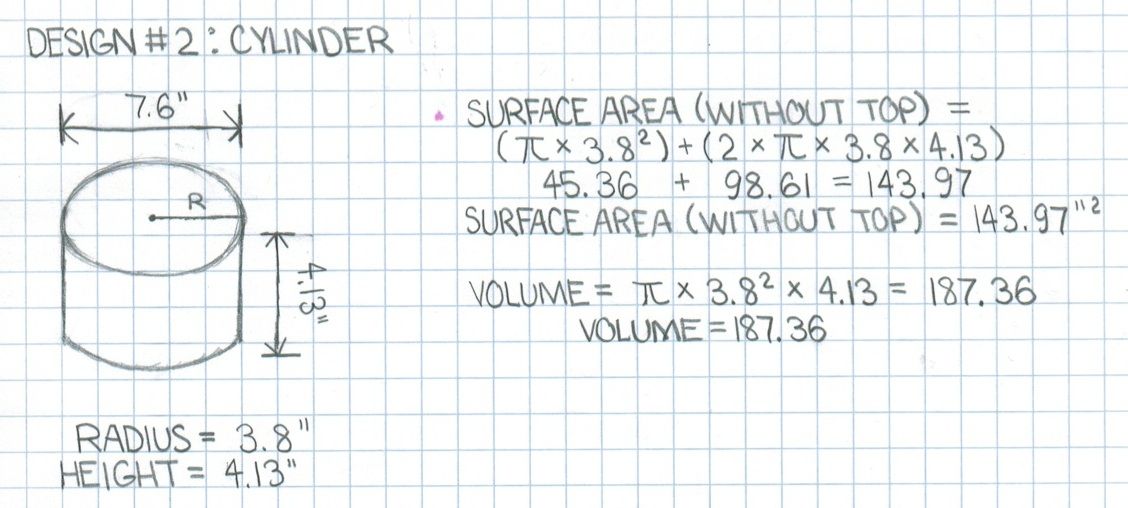 DESIGN #2: CYLINDER
7.6"
R
4.13"
RADIUS = 3.8"
HEIGHT = 4.13"
SURFACE AREA (WITHOUT TOP) =
(π × 3.8²) + (2 × π × 3.8 × 4.13)
45.36 + 98.61 = 143.97
SURFACE AREA (WITHOUT TOP) = 143.97"²
VOLUME = π × 3.8² × 4.13 = 187.36
VOLUME = 187.36